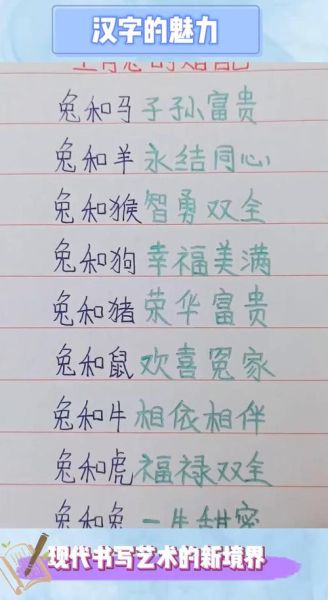 汉字的魅力
兔和马子孙富贵
兔和羊永结同心
兔和猴智勇双全
兔和狗幸福美满
兔和猪荣华富贵
兔和鼠欢喜冤家
兔和牛相依相伴
兔和虎福禄双全
兔和兔一生甜蜜
现代书写艺术的新境界